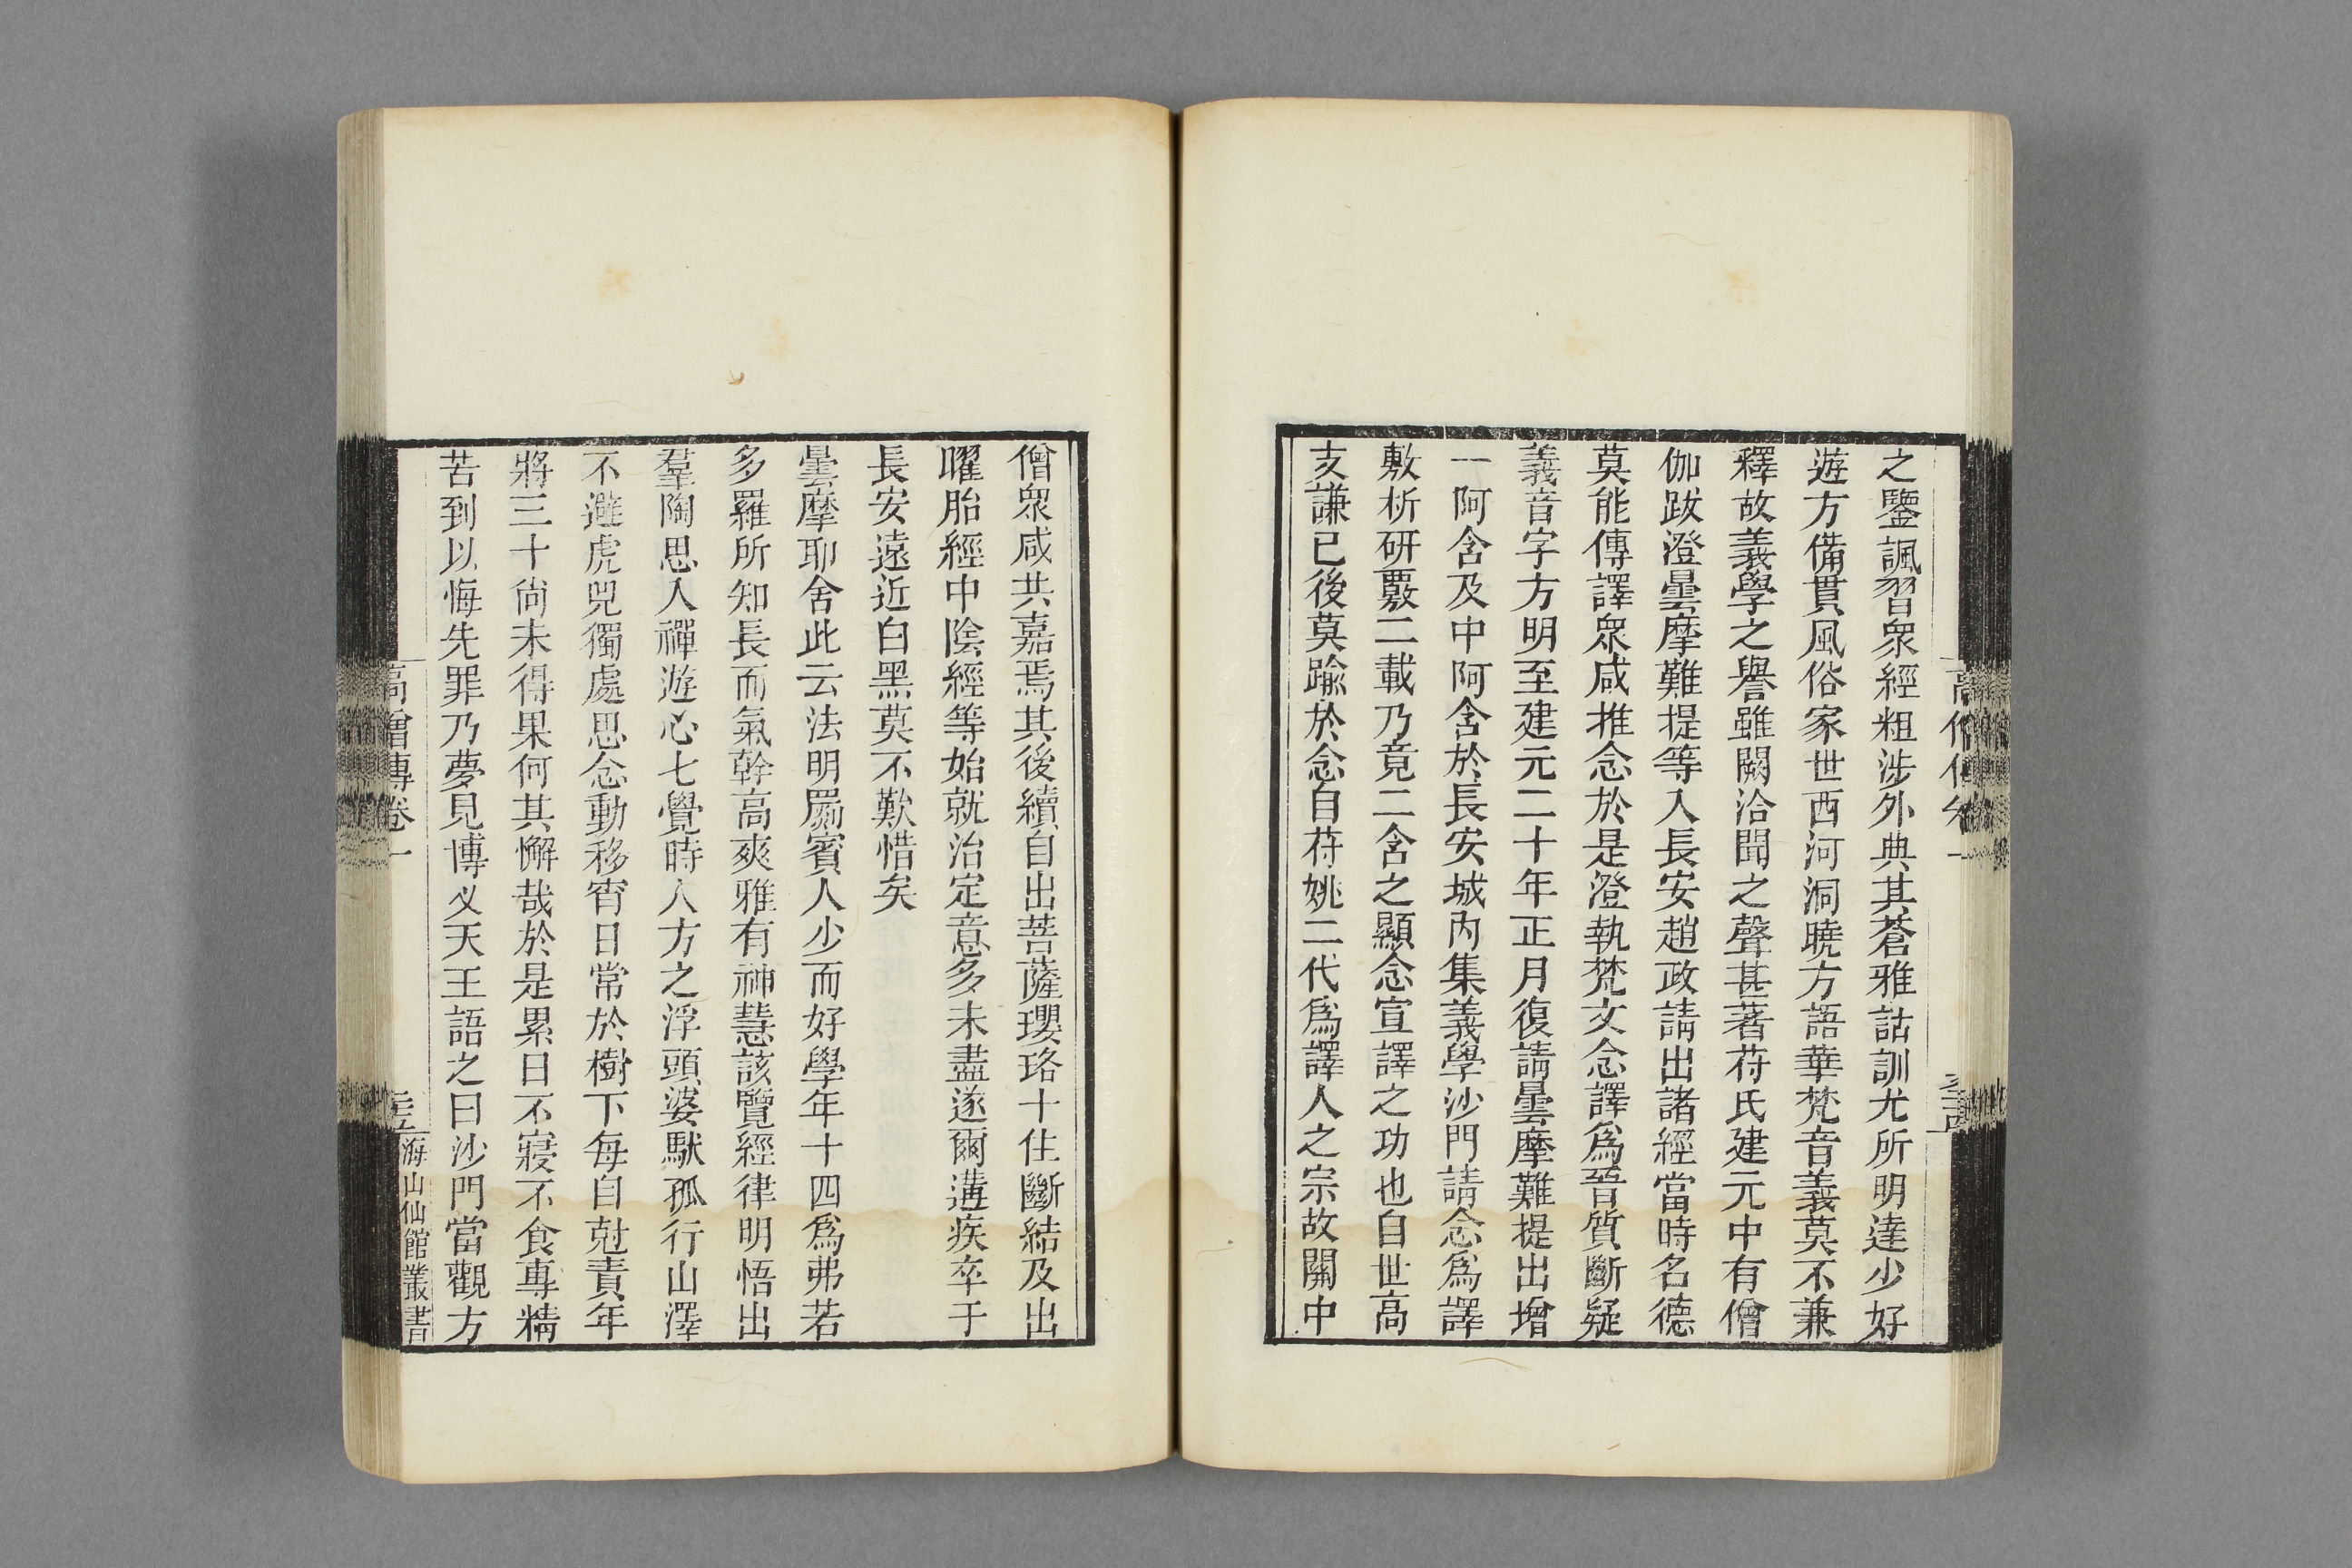 之鑒諷習衆經粗涉外典其蒼雅詁訓尤所明達少好
遊方備貫風俗家世西河洞曉方語華梵音義莫不兼
釋故義學之譽雖闕洽聞之聲甚著苻氏建元中有僧
伽跋澄曇摩難提等入長安趙政請出諸經當時名德
莫能傳譯衆咸推念於是澄執梵文念譯爲晉質斷疑
義音字方明至建元二十年正月復請曇摩難提出增
一阿含及中阿含於長安城內集義學沙門請念爲譯
敷析研覈二載乃竟二含之顯念宣譯之功也自世高
支謙已後莫踰於念自苻姚二代爲譯人之宗故關中
僧衆咸共嘉焉其後續自出菩薩瓔珞十住斷結及出
曜胎經中陰經等始就治定意多未盡遂爾遘疾卒于
長安遠近白黑莫不歎惜矣
曇摩耶舍此云法明罽賓人少而好學年十四爲弗若
多羅所知長而氣幹高爽雅有神慧該覽經律明悟出
羣陶思入禪遊心七覺時人方之浮頭婆馱孤行山澤
不避虎兕獨處思念動移宵日常於樹下每自尅責年
將三十尚未得果何其懈哉於是累日不寢不食專精
苦到以悔先罪乃夢見博义天王語之曰沙門當觀方
高僧傳卷一
海山仙館叢書